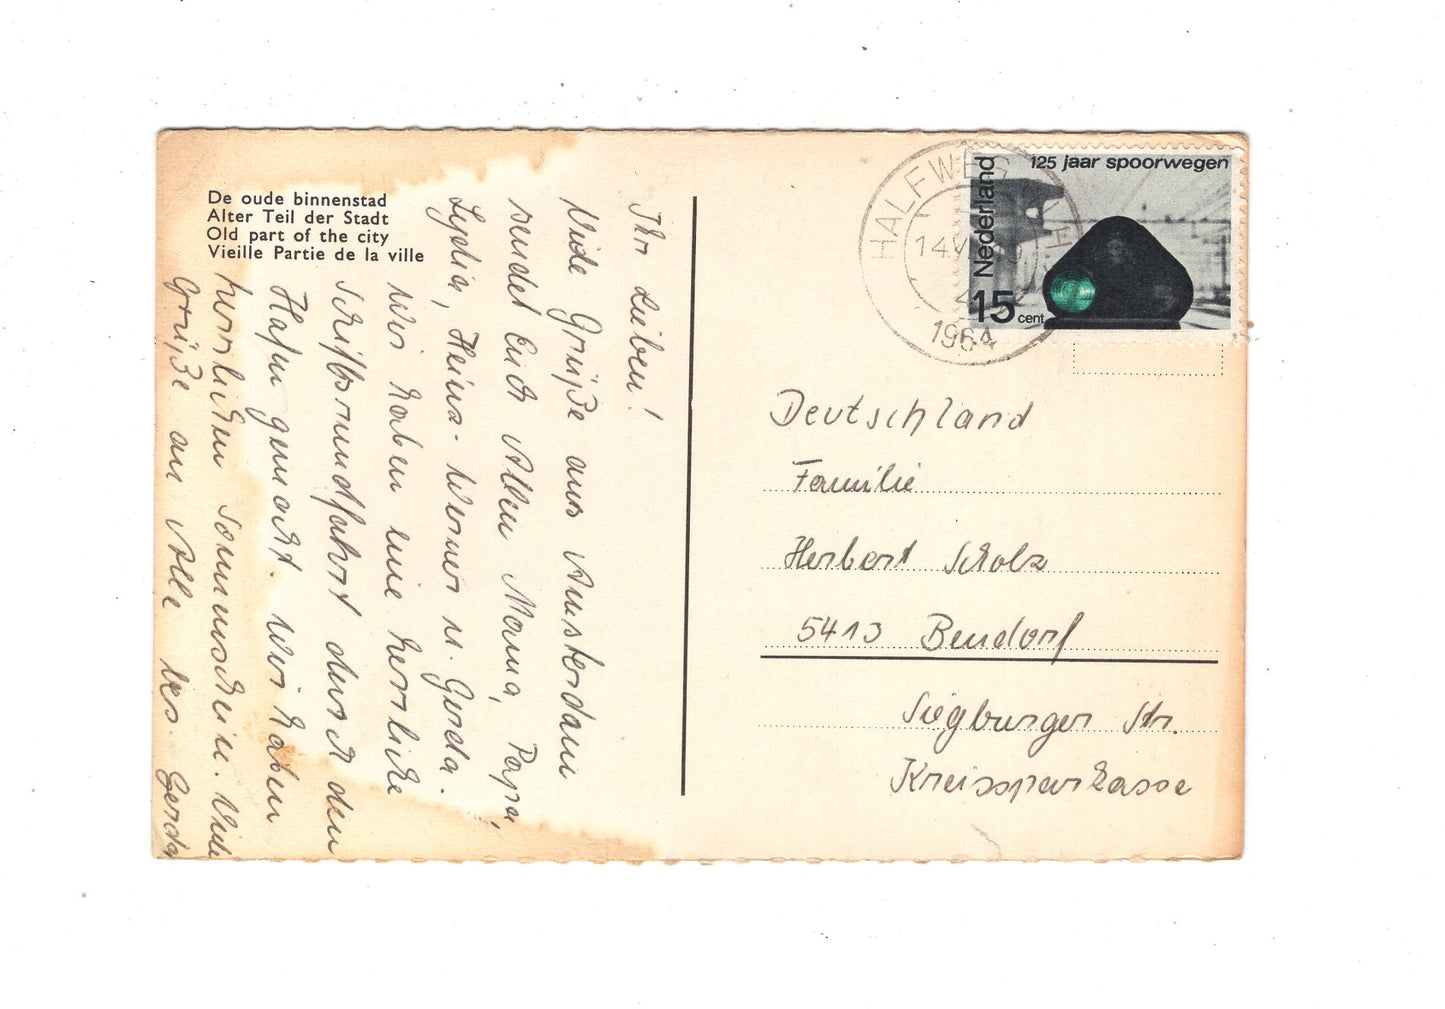 De oude binnenstad
Alter Teil der Stadt
Old part of the city
Vieille Partie de la ville
Ihr Lieben!
Viele Grüße aus Amsterdam
sendet Euch Allen Mama, Papa,
Lydia, Heinz-Werner u. Gerda.
Wir haben eine herrliche
Schiffsrundfahrt durch den
Hafen gemacht. Wir haben
herrlichen Sonnenschein. Viele
Grüße an Alle bes. Gerda
HALFWEG
14 V
1964
125 jaar spoorwegen
Nederland
15 cent
Deutschland
Familie
Herbert Scholz
5413 Bendorf
Siegburger Str.
Kreissparkasse